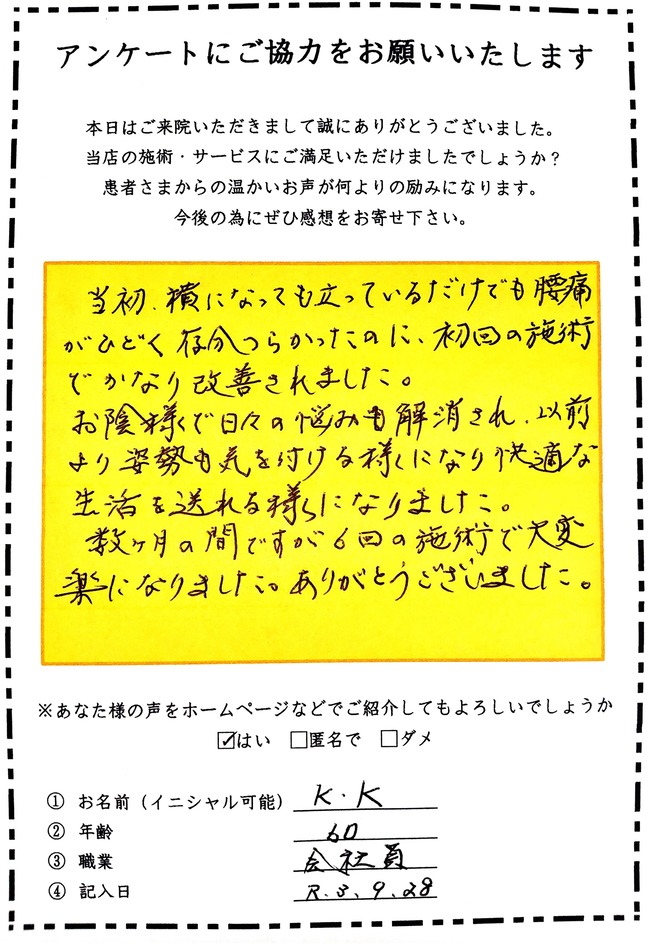 アンケートにご協力をお願いいたします
本日はご来院いただきまして誠にありがとうございました。
当店の施術・サービスにご満足いただけましたでしょうか？
患者さまからの温かいお声が何よりの励みになります。
今後の為にぜひ感想をお寄せ下さい。
当初、横になっても立っているだけでも腰痛
がひどく存分つらかったのに、初回の施術
でかなり改善されました。
お陰様で日々の悩みも解消され、以前
より姿勢も気を付ける様になり快適な
生活を送れる様になりました。
数ヶ月の間ですが6回の施術で大変
楽になりました。ありがとうございました。
※あなた様の声をホームページなどでご紹介してもよろしいでしょうか
☑はい □匿名で □ダメ
① お名前（イニシャル可能） K・K
② 年齢 60
③ 職業 会社員
④ 記入日 R.3、9.28